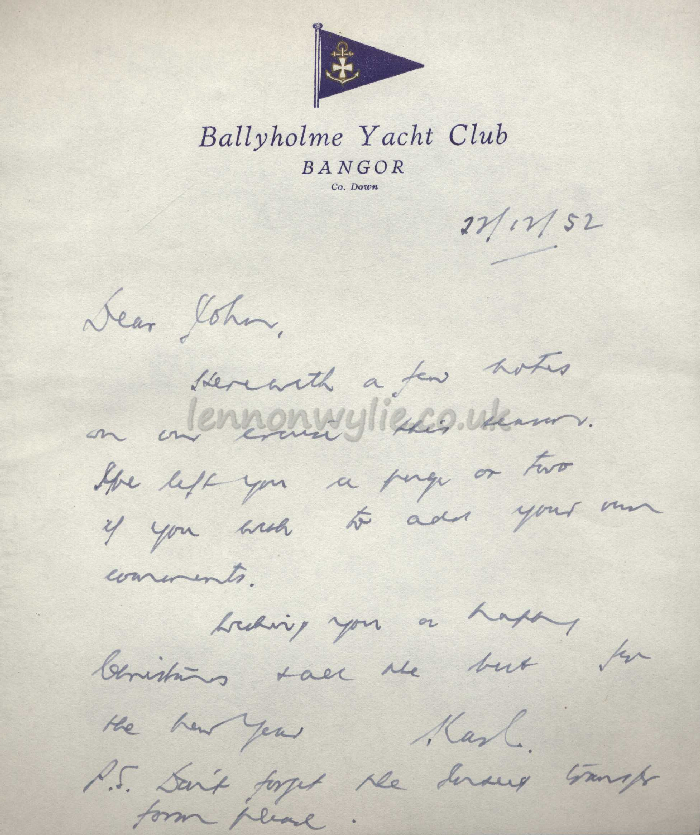 Ballyholme Yacht Club
BANGOR
Co. Down
22/12/52
Dear John,
Herewith a few notes
lennonwylie.co.uk
on our cruise this season.
I've left you a page or two
if you wish to add your own
comments.
Wishing you a happy
Christmas & all the best for
the New Year Karl.
P.S. Don't forget the transfer
form please.